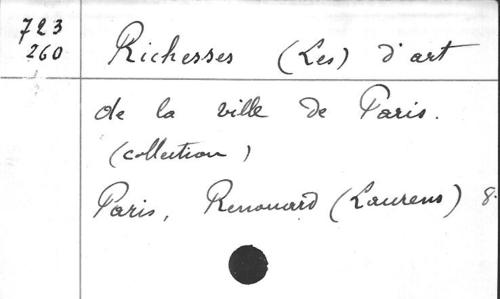 723
260
Richesses (Les) d'art
de la ville de Paris.
(collection)
Paris, Renouard (Laurens) 8.